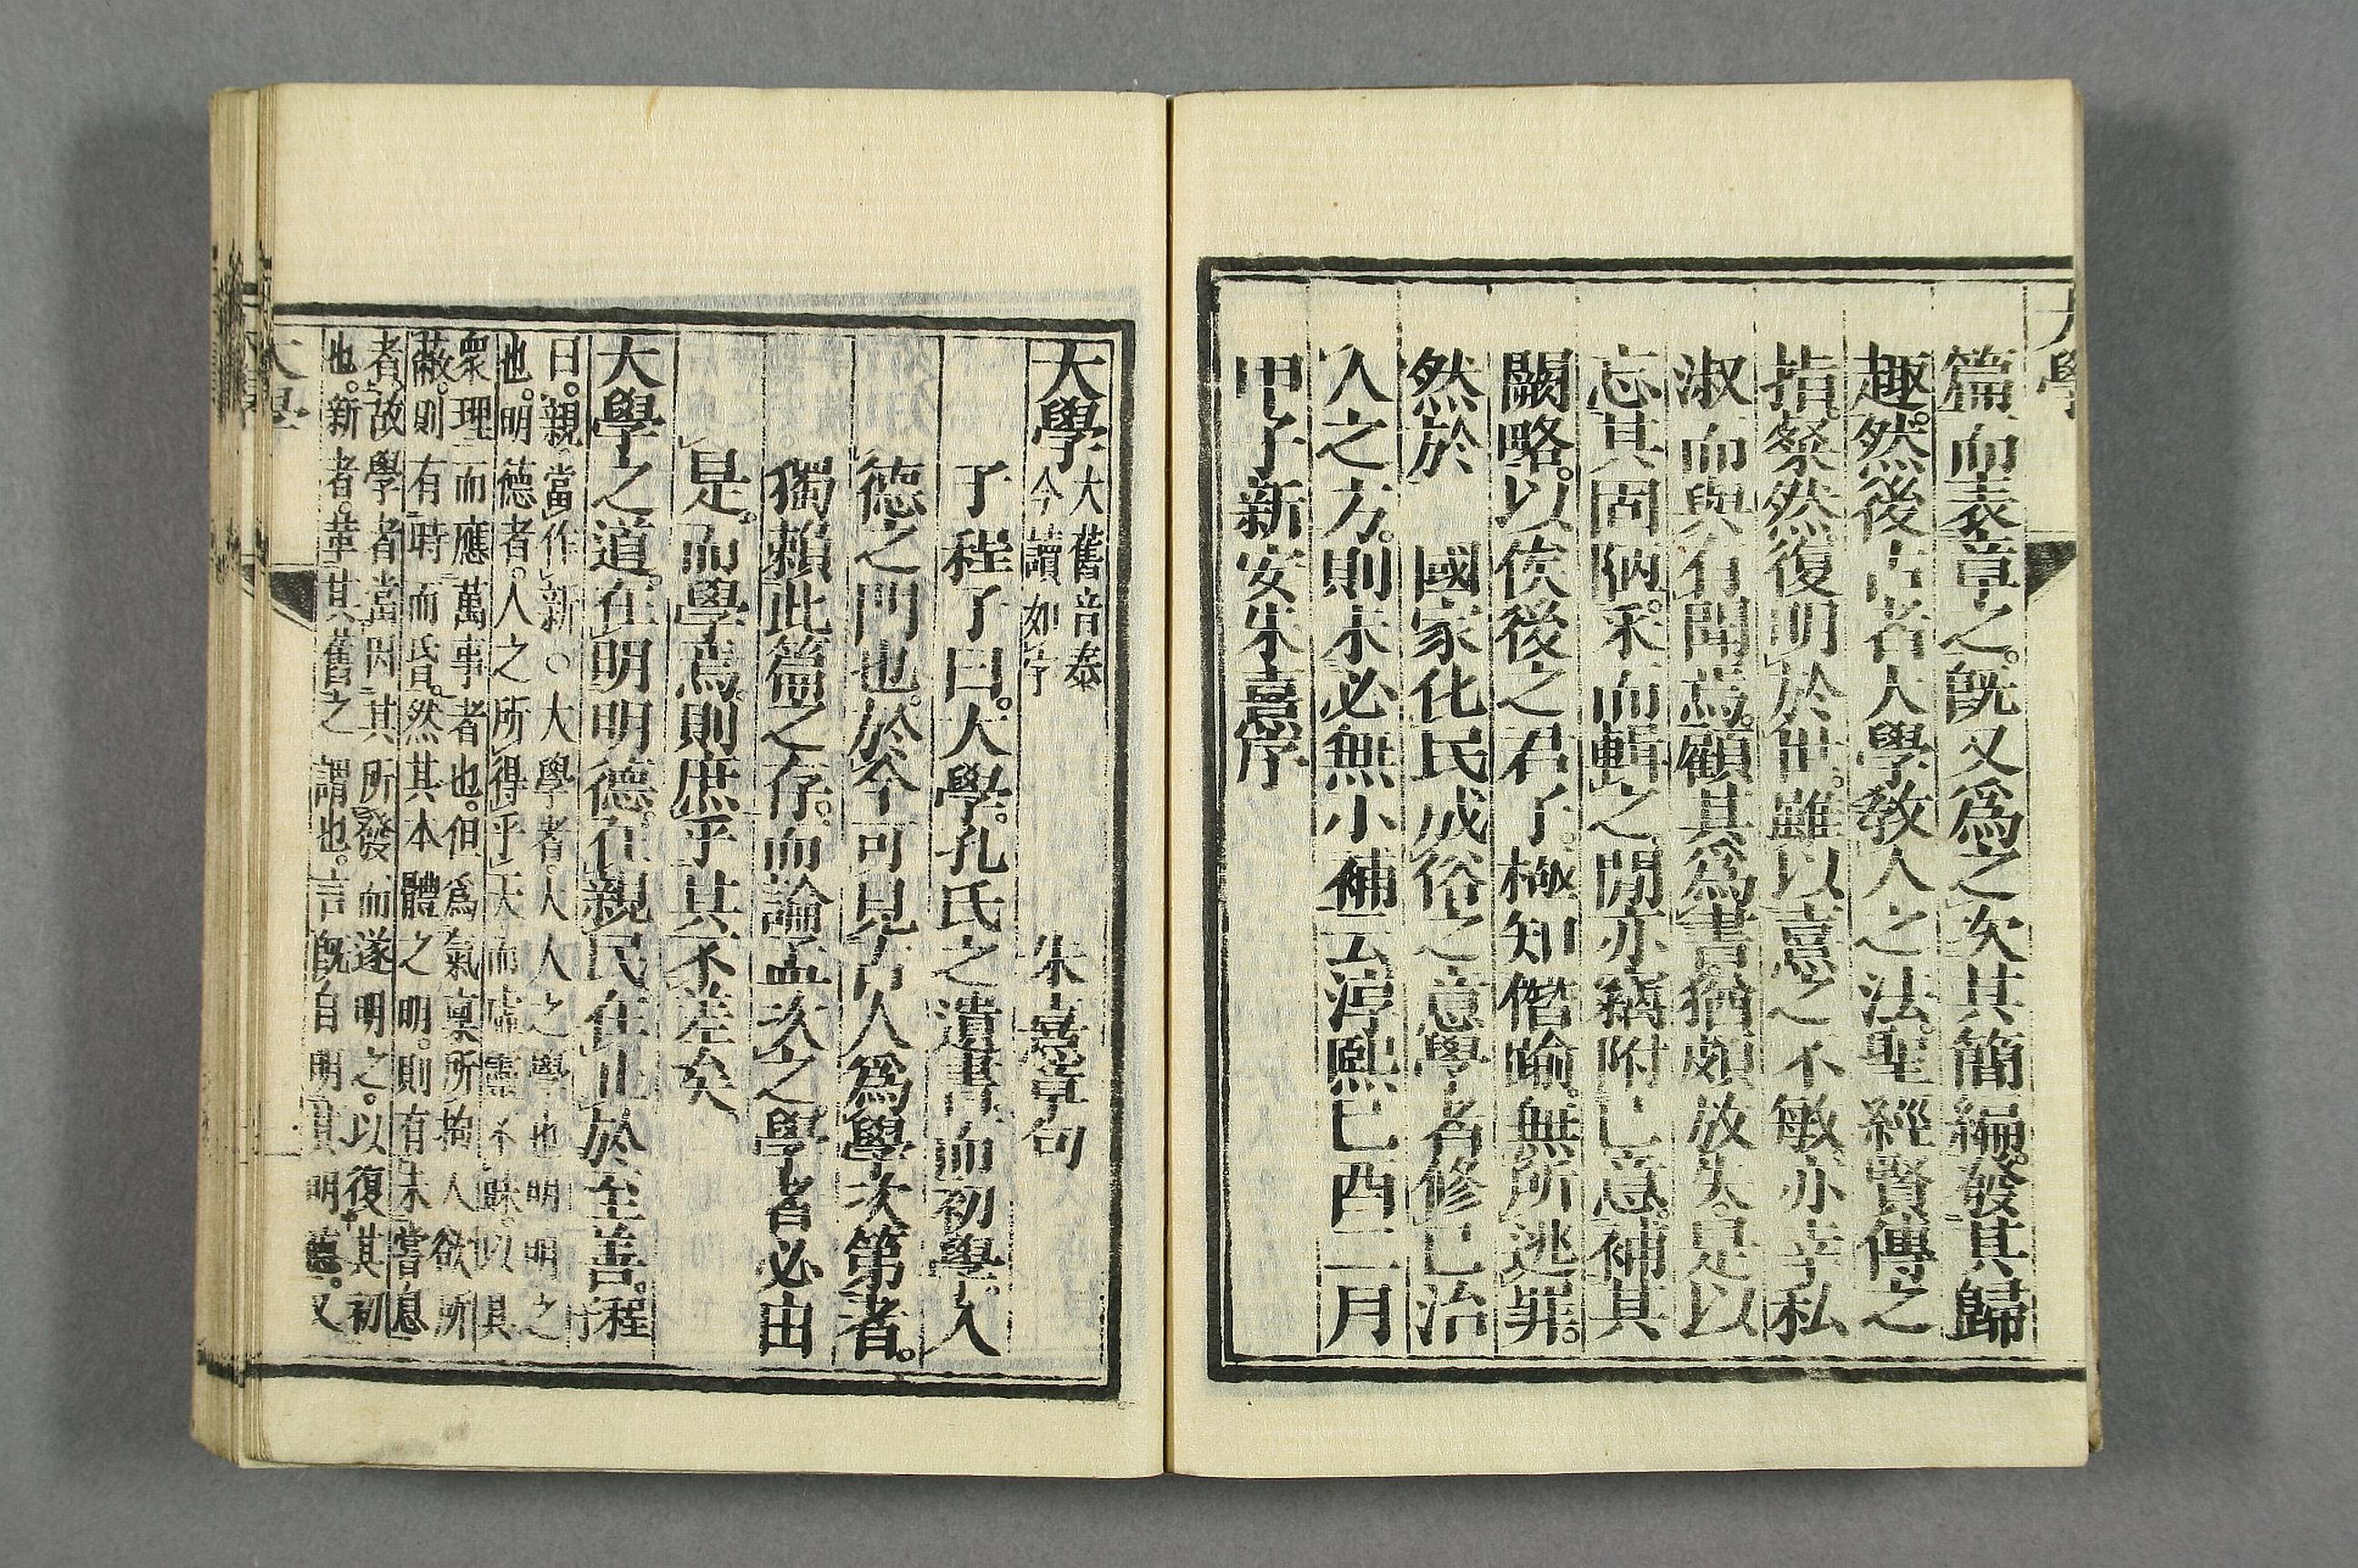 大學
篇而表章之。旣又爲之次其簡編。發其歸
趣。然後古者大學教人之法。聖經賢傳之
指。粲然復明於世。雖以熹之不敏。亦幸私
淑而與有聞焉。顧其爲書猶頗放失。是以
忘其固陋。采而輯之。閒亦竊附己意。補其
闕略。以俟後之君子。極知僭踰。無所逃罪。
然於 國家化民成俗之意。學者修己治
人之方。則未必無小補云。淳熙己酉二月
甲子新安朱熹序
大學
大舊音泰
今讀如字
朱熹章句
子程子曰。大學。孔氏之遺書。而初學入
德之門也。於今可見古人爲學次第者。
獨賴此篇之存。而論孟次之。學者必由
是。而學焉。則庶乎其不差矣。
大學之道。在明明德。在親民。在止於至善。程
子
曰。親。當作新。○大學者。大人之學也。明。明之
也。明德者。人之所得乎天。而虛靈不昧。以具
衆理而應萬事者也。但爲氣稟所拘。人欲所
蔽。則有時而昏。然其本體之明。則有未嘗息
者。故學者當因其所發。而遂明之。以復其初
也。新者。革其舊之謂也。言旣自明其明德。又
大學